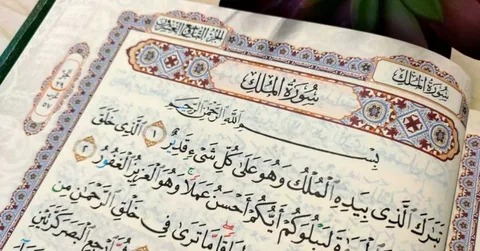 الجزء التاسع والعشرون
سُورَةُ المُلْكِ
سُورَةُ المُلْكِ
بِسْمِ اللَّهِ الرَّحْمَٰنِ الرَّحِيمِ
تَبَٰرَكَ الَّذِي بِيَدِهِ الْمُلْكُ وَهُوَ عَلَىٰ كُلِّ شَيْءٍ قَدِيرٌ ١ الَّذِي خَلَقَ
لِيَبْلُوَكُمْ أَيُّكُمْ أَحْسَنُ عَمَلًا وَهُوَ الْعَزِيزُ الْغَفُورُ ٢
مَّا تَرَىٰ فِي خَلْقِ الرَّحْمَٰنِ مِن
ارْجِعِ الْبَصَرَ كَرَّتَيْنِ